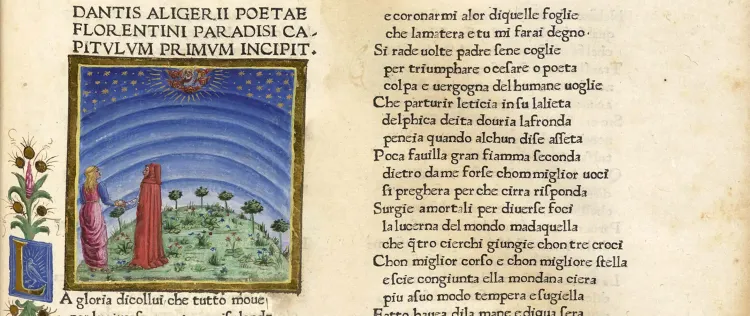 DANTIS ALIGERII POETAE
FLORENTINI PARADISI CA-
PITVLVM PRIMVM INCIPIT.
LA gloria dicollui che tutto moue
e coronarmi alor diquelle foglie
che lamatera e tu mi farai degno.
Si rade uolte padre sene coglie
per triumphare o cesare o poeta
colpa e uergogna del humane uoglie
Che parturir leticia in su lalieta
delphica deita douria lafronda
peneia quando alchun dise asseta
Poca fauilla gran fiamma seconda
dietro da me forse chom miglior uoci
si preghera per che cirra risponda
Surgie amortali per diuerse foci
la lucerna del mondo madaquella
che q̄tro cierchi giungie chon tre croci
Chon miglior corso e chon migliore stella
e scie congiunta ella mondana ciera
piu asuo modo tempera e sugiella
Fatto hauea dila mane e diqua sera